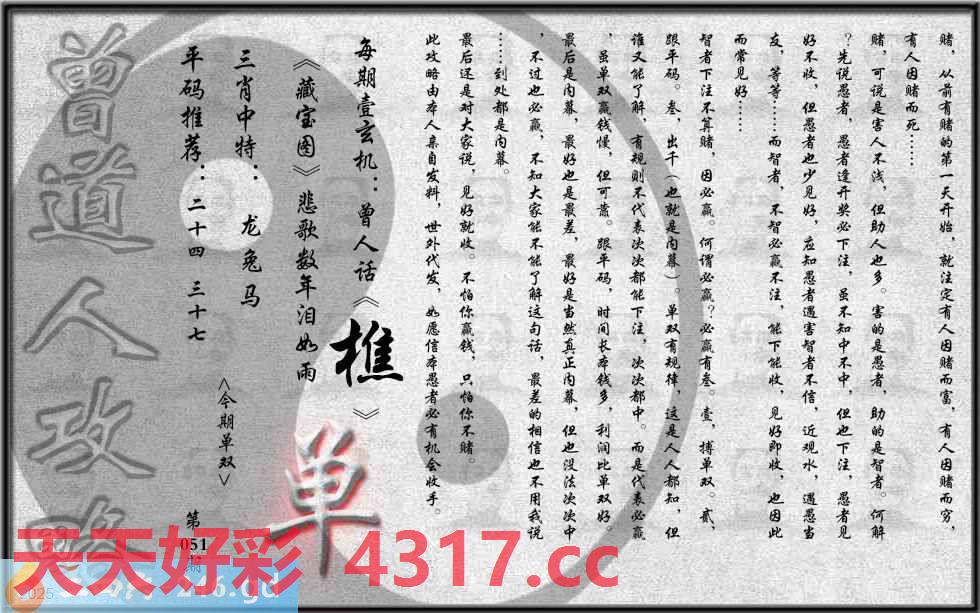 赌，从前有赌的第一天开始，就注定有人因赌而富，有人因赌而穷，
有人因赌而死……
赌，可说是害人不浅，但助人也多。害的是愚者，助的是智者。何解
？先说愚者，愚者逢开奖必下注，虽不知中不中，但也下注，愚者见
好不收，但愚者也少见好，应知愚者遇害智者不信，近观水，遇愚当
友，等等……而智者，不智必赢不注，能下能收，见好即收，也因此
而常见好……
智者下注不算赌，因必赢。何谓必赢？必赢有叁。壹，搏单双。贰，
跟平码。叁，出千（也就是内幕）。单双有规律，这是人人都知，但
谁又能了解，有规则不代表次次都能下注，次次都中。而是代表必赢
，虽单双赢钱慢，但可靠。跟平码，时间长本钱多，利润比单双好。
最后是内幕，最好也是最差，最好是当然真正内幕，但也没法次次中
，不过也必赢，不知大家能不能了解这句话，最差的相信也不用我说
……到处都是内幕。
最后还是对大家说，见好就收。不怕你赢钱，只怕你不赌。
此攻略由本人亲自发料，世外代发，如愿信本愚者必有机会收手。
每期壹玄机：曾人话《樵》
《藏宝图》悲歌数年泪如雨
三肖中特：龙兔马
平码推荐：二十四 三十七
<今期单双>
单
第
051
期
曾道人攻略
天天好彩 4317.cc
2025
246.gd